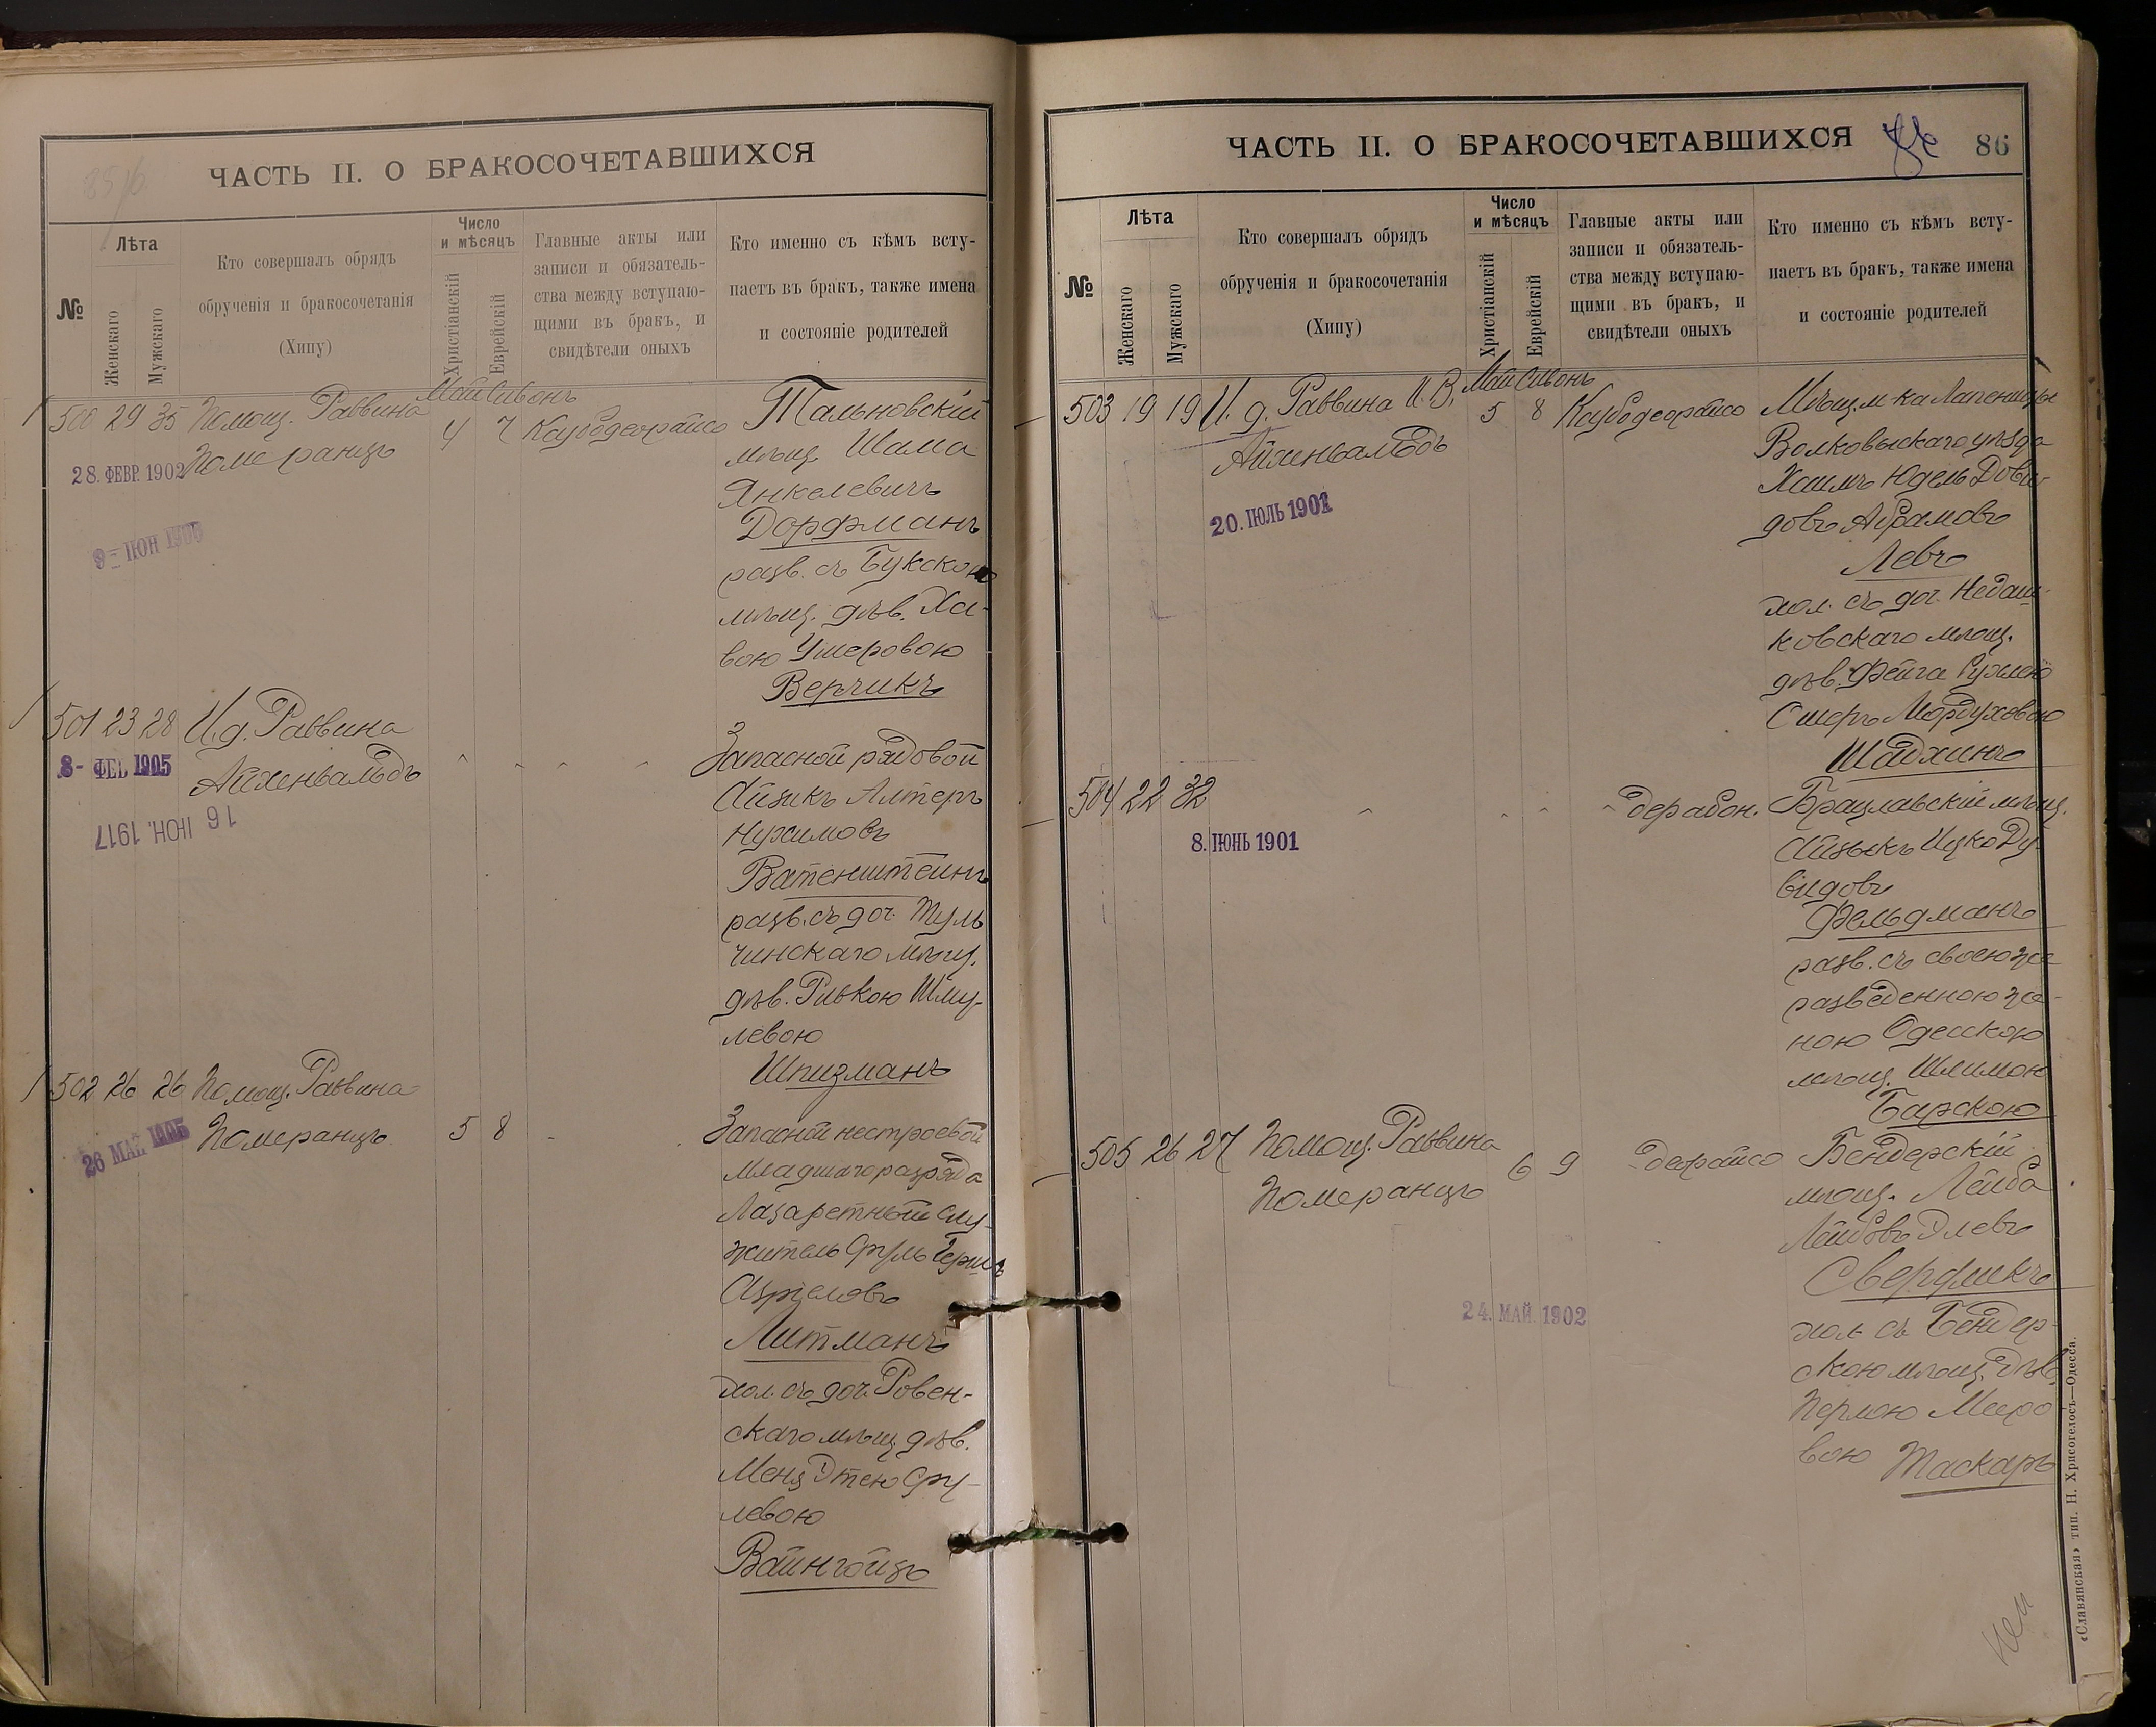 ЧАСТЬ II. О БРАКОСОЧЕТАВШИХСЯ
№
Лѣта
Женскаго
Мужскаго
Кто совершалъ обрядъ
обрученія и бракосочетанія
(Хипу)
Число
и мѣсяцъ
Христіанскій
Еврейскій
Главные акты или
записи и обязатель-
ства между вступаю-
щими въ бракъ, и
свидѣтели оныхъ
Кто именно съ кѣмъ всту-
паетъ въ бракъ, также имена
и состояніе родителей
500 29 35 Помощ. Раввина
Померанцъ
Май Сивонъ
4 7
28. ФЕВР. 1902
9- ІЮН
Тальновскій
мѣщ. Шама
Янкелевичъ
Дорфманъ
разв. съ Букскою
мѣщ. дѣв. Ха-
вою Умеровою
Верчикъ
501 23 28 И. д. Раввина
Айхенвальдъ
8- ФЕВ 1905
16 ІЮН. 1917
Запасной рядовой
Айзикъ Алтеръ
Нухимовъ
Ватенштейнъ
разв. съ доч. Туль
чинскаго мѣщ.
дѣв. Ривкою Шму-
левою
Шпизманъ
502 26 26 Помощ. Раввина
Померанцъ
5 8
26 МАЙ 1905
Запасной нестроевой
младшаго разряда
Лазаретный слу-
житель Сруль Герш
Азріеловъ
Литманъ
хол. съ доч. Ровен-
скаго мѣщ. дѣв.
Менц Этею Сру-
левою
Вайнгойзъ
ЧАСТЬ II. О БРАКОСОЧЕТАВШИХСЯ
86
№
Лѣта
Женскаго
Мужскаго
Кто совершалъ обрядъ
обрученія и бракосочетанія
(Хипу)
Число
и мѣсяцъ
Христіанскій
Еврейскій
Главные акты или
записи и обязатель-
ства между вступаю-
щими въ бракъ, и
свидѣтели оныхъ
Кто именно съ кѣмъ всту-
паетъ въ бракъ, также имена
и состояніе родителей
503 19 19 И. д. Раввина И. В.
Айхенвальдъ
Май Сивонъ
5 8
20. ІЮЛЬ 1901
Мѣщ. м-ка
Волковыскаго уѣзда
Хаимъ Юдель Дови-
довъ Абрамовъ
Левъ
хол. съ доч. Недаш-
ковскаго мѣщ.
дѣв. Фейга Рухлею
Стеръ Мордуховою
Шадхинъ
504 22 32
8. ІЮНЬ 1901
дерабон.
Брацлавскій мѣщ.
Айзыкъ Ицко Ду-
видовъ
Фельдманъ
разв. съ своею же
разведенною же-
ною Одесскою
мѣщ. Шлимою
Барскою
505 26 27 Помощ. Раввина
Померанцъ
6 9
24. МАЙ 1902
Бендерскій
мѣщ. Лейба
Лейбовъ Элевъ
Свердликъ
хол. съ Бендер-
скою мѣщ. дѣв.
Перлою Мееро-
вою Таскаръ
«Славянская» тип. Н. Хрисогелосъ—Одесса.